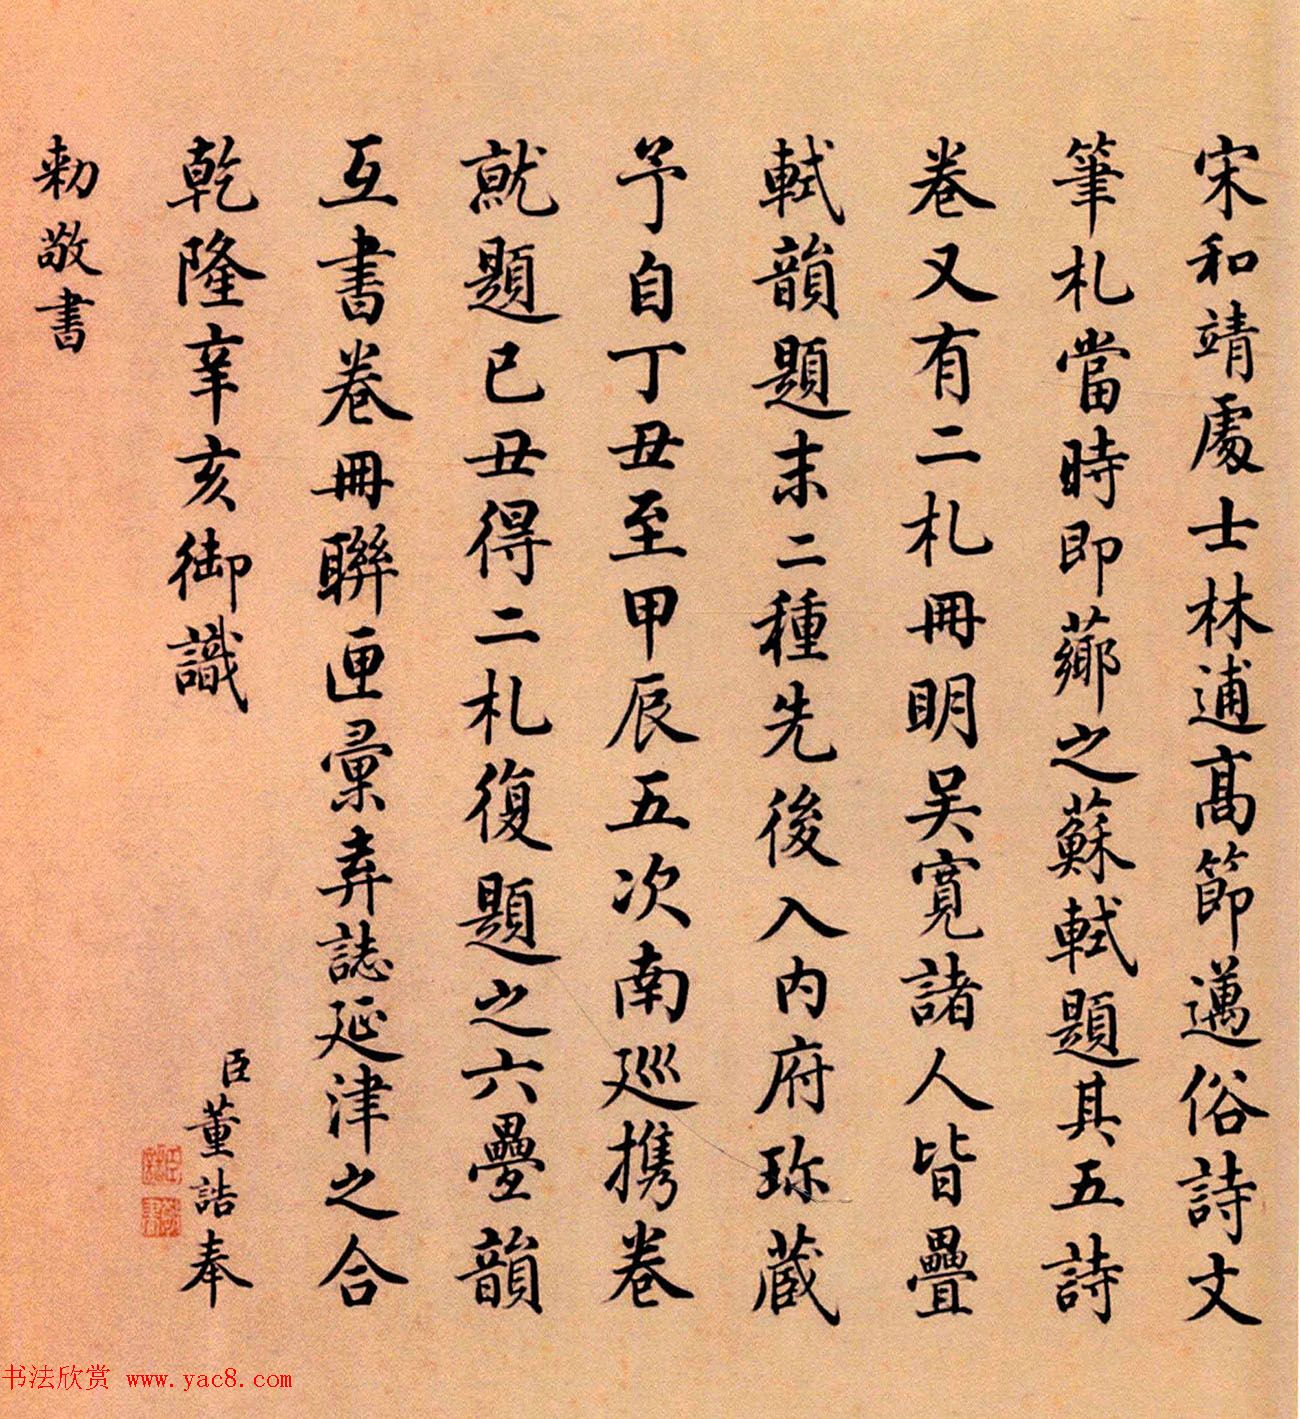 宋和靖處士林逋高節邁俗詩文
筆札當時即薌之蘇軾題其五詩
卷又有二札冊明吴寬諸人皆疊
軾韻題末二種先後入内府珎藏
予自丁丑至甲辰五次南巡携卷
就題已丑得二札復題之六疊韻
互書卷冊聯匣彙弆誌延津之合
乾隆辛亥御識
臣董誥奉
勅敬書
书法欣赏 www.yac8.com